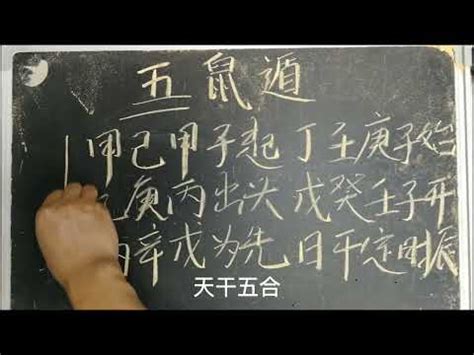 五鼠遁
甲己甲子起 丁壬庚子始
庚丙出头 戊癸壬子开
丙辛戊为先 日干定时辰
天干五合